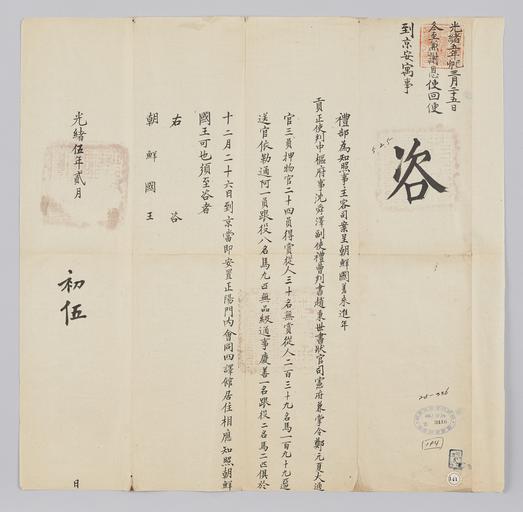 光緖五年
三月二十五日
謝恩使回便
到京安寓事
咨
525
禮部爲知照事主客司案呈朝鮮國差來進年
貢正使判中樞府事沈舜澤副使禮曹判書趙秉世書狀官司憲府兼掌令鄭元夏大通
官三員押物官二十四員得賞從人三十名無賞從人二百三十九名馬一百九十九匹
送官依勒通阿一員跟役八名馬九匹無品級通事慶善一名跟役二名馬二匹俱於
十二月二十六日到京當卽安置正陽門內會同四譯館居住相應知照朝鮮
國王可也須至咨者
右咨
朝鮮國王
光緖伍年貳月
初伍
日
20-336
184
341